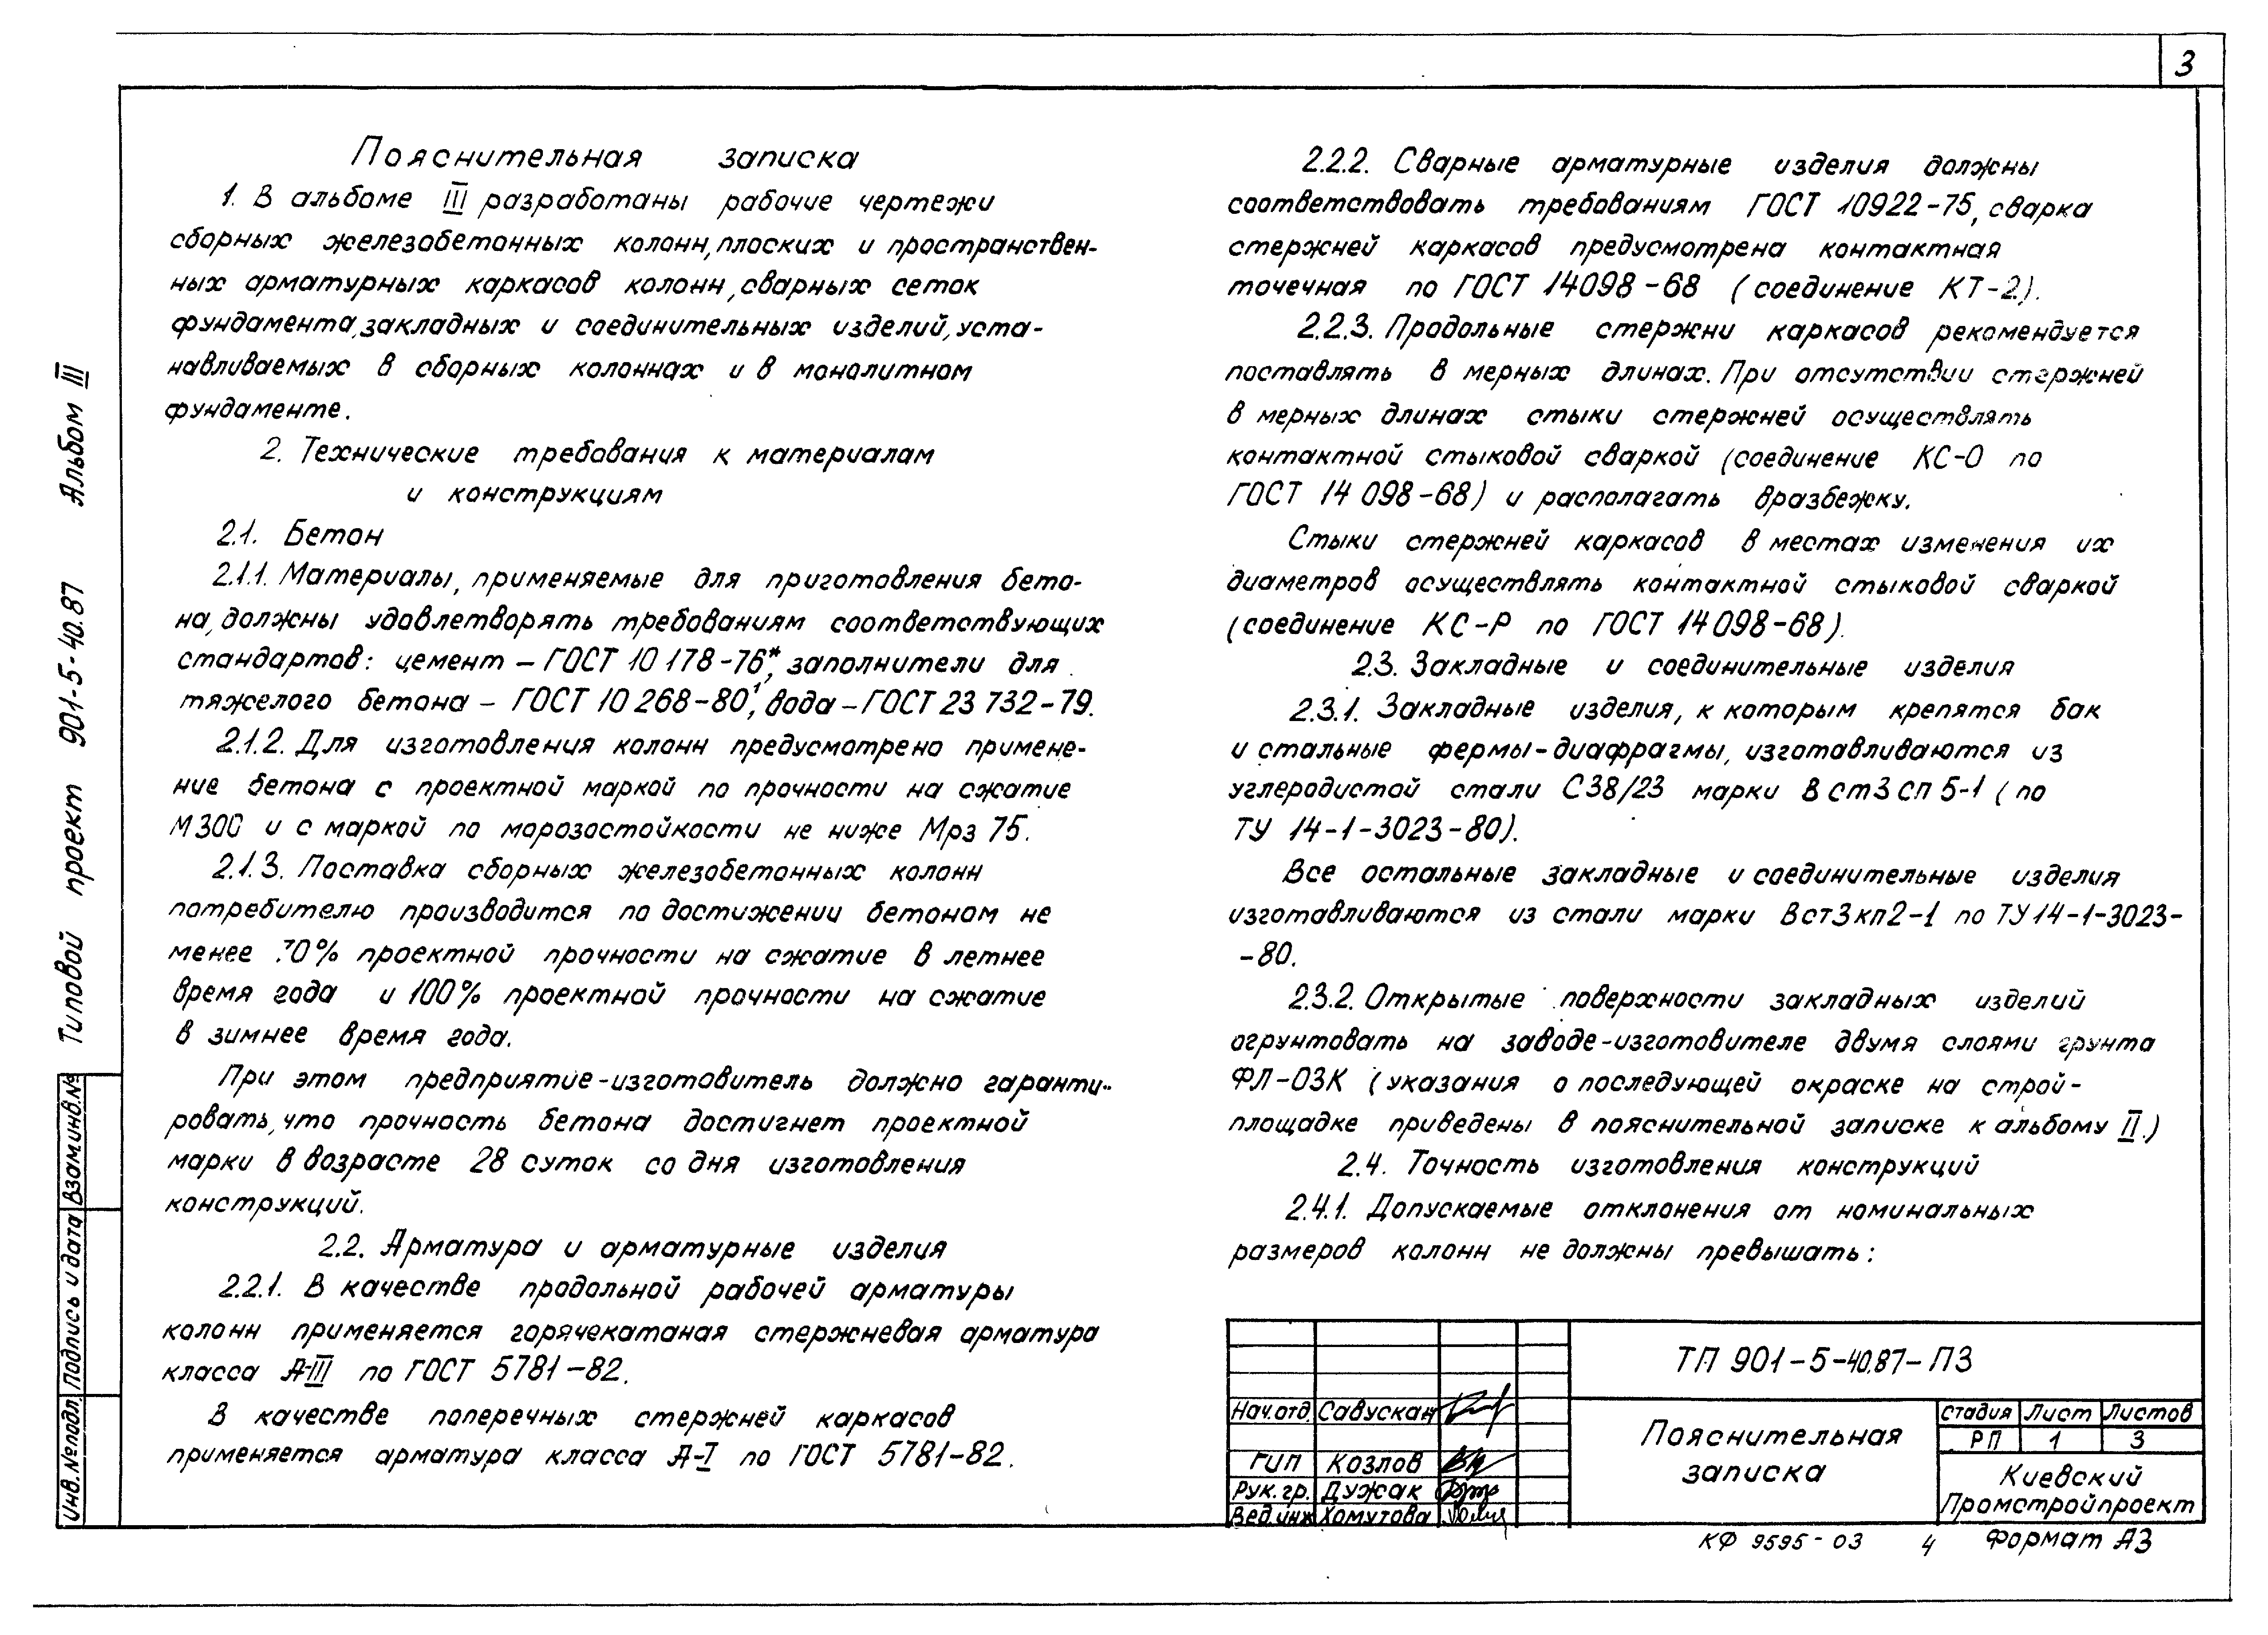 3
Пояснительная записка
1. В альбоме III разработаны рабочие чертежи
сборных железобетонных колонн, плоских и пространствен-
ных арматурных каркасов колонн, сварных сеток
фундамента, закладных и соединительных изделий, уста-
навливаемых в сборных колоннах и в монолитном
фундаменте.
2. Технические требования к материалам
и конструкциям
2.1. Бетон
2.1.1. Материалы, применяемые для приготовления бето-
на, должны удовлетворять требованиям соответствующих
стандартов: цемент – ГОСТ 10 178-76*, заполнители для
тяжелого бетона – ГОСТ 10 268-80', вода – ГОСТ 23 732-79.
2.1.2. Для изготовления колонн предусмотрено примене-
ние бетона с проектной маркой по прочности на сжатие
М300 и с маркой по морозостойкости не ниже Мрз 75.
2.1.3. Поставка сборных железобетонных колонн
потребителю производится по достижении бетоном не
менее 70% проектной прочности на сжатие в летнее
время года и 100% проектной прочности на сжатие
в зимнее время года.
При этом предприятие-изготовитель должно гаранти-
ровать, что прочность бетона достигнет проектной
марки в возрасте 28 суток со дня изготовления
конструкций.
2.2. Арматура и арматурные изделия
2.2.1. В качестве продольной рабочей арматуры
колонн применяется горячекатаная стержневая арматура
класса А-III по ГОСТ 5781-82.
В качестве поперечных стержней каркасов
применяется арматура класса А-I по ГОСТ 5781-82.
2.2.2. Сварные арматурные изделия должны
соответствовать требованиям ГОСТ 10922-75, сварка
стержней каркасов предусмотрена контактная
точечная по ГОСТ 14098-68 (соединение КТ-2).
2.2.3. Продольные стержни каркасов рекомендуется
поставлять в мерных длинах. При отсутствии стержней
в мерных длинах стыки стержней осуществлять
контактной стыковой сваркой (соединение КС-О по
ГОСТ 14 098-68) и располагать вразбежку.
Стыки стержней каркасов в местах изменения их
диаметров осуществлять контактной стыковой сваркой
(соединение КС-Р по ГОСТ 14 098-68).
2.3. Закладные и соединительные изделия
2.3.1. Закладные изделия, к которым крепятся бак
и стальные фермы-диафрагмы, изготавливаются из
углеродистой стали С38/23 марки В ст3 сп 5-1 (по
ТУ 14-1-3023-80).
Все остальные закладные и соединительные изделия
изготавливаются из стали марки Вст3кп2-1 по ТУ14-1-3023-
-80.
2.3.2. Открытые поверхности закладных изделий
огрунтовать на заводе-изготовителе двумя слоями грунта
ФЛ-03К (указания о последующей окраске на строй-
площадке приведены в пояснительной записке к альбому II.)
2.4. Точность изготовления конструкций
2.4.1. Допускаемые отклонения от номинальных
размеров колонн не должны превышать:
Типовой проект 901-5-40.87 Альбом III
Взам.инв.№
Подпись и дата
Инв.№подл.
ТП 901-5-40.87-ПЗ
Нач.отд. Савускан
ГИП Козлов
Рук.гр. Дужак
Вед.инж Хомутова
Пояснительная
записка
Стадия Лист Листов
РП 1 3
Киевский
Промстройпроект
КФ 9595-03 4 Формат А3